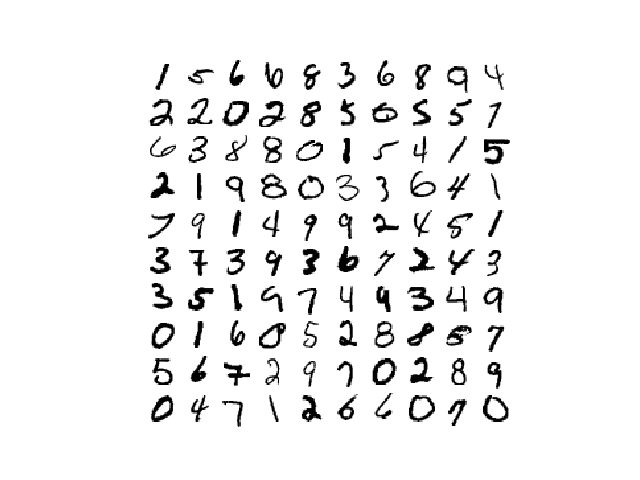 1 5 6 6 8 3 6 8 9 4
2 2 0 2 8 5 0 5 5 7
6 3 8 8 0 1 5 4 1 5
2 1 9 8 0 3 3 6 4 1
7 9 1 4 9 9 2 4 5 1
3 7 3 9 3 6 7 2 4 3
3 5 1 9 7 4 9 3 4 9
0 1 6 0 5 2 8 8 5 7
5 6 7 2 9 7 0 2 8 9
0 4 7 1 2 6 6 0 7 0